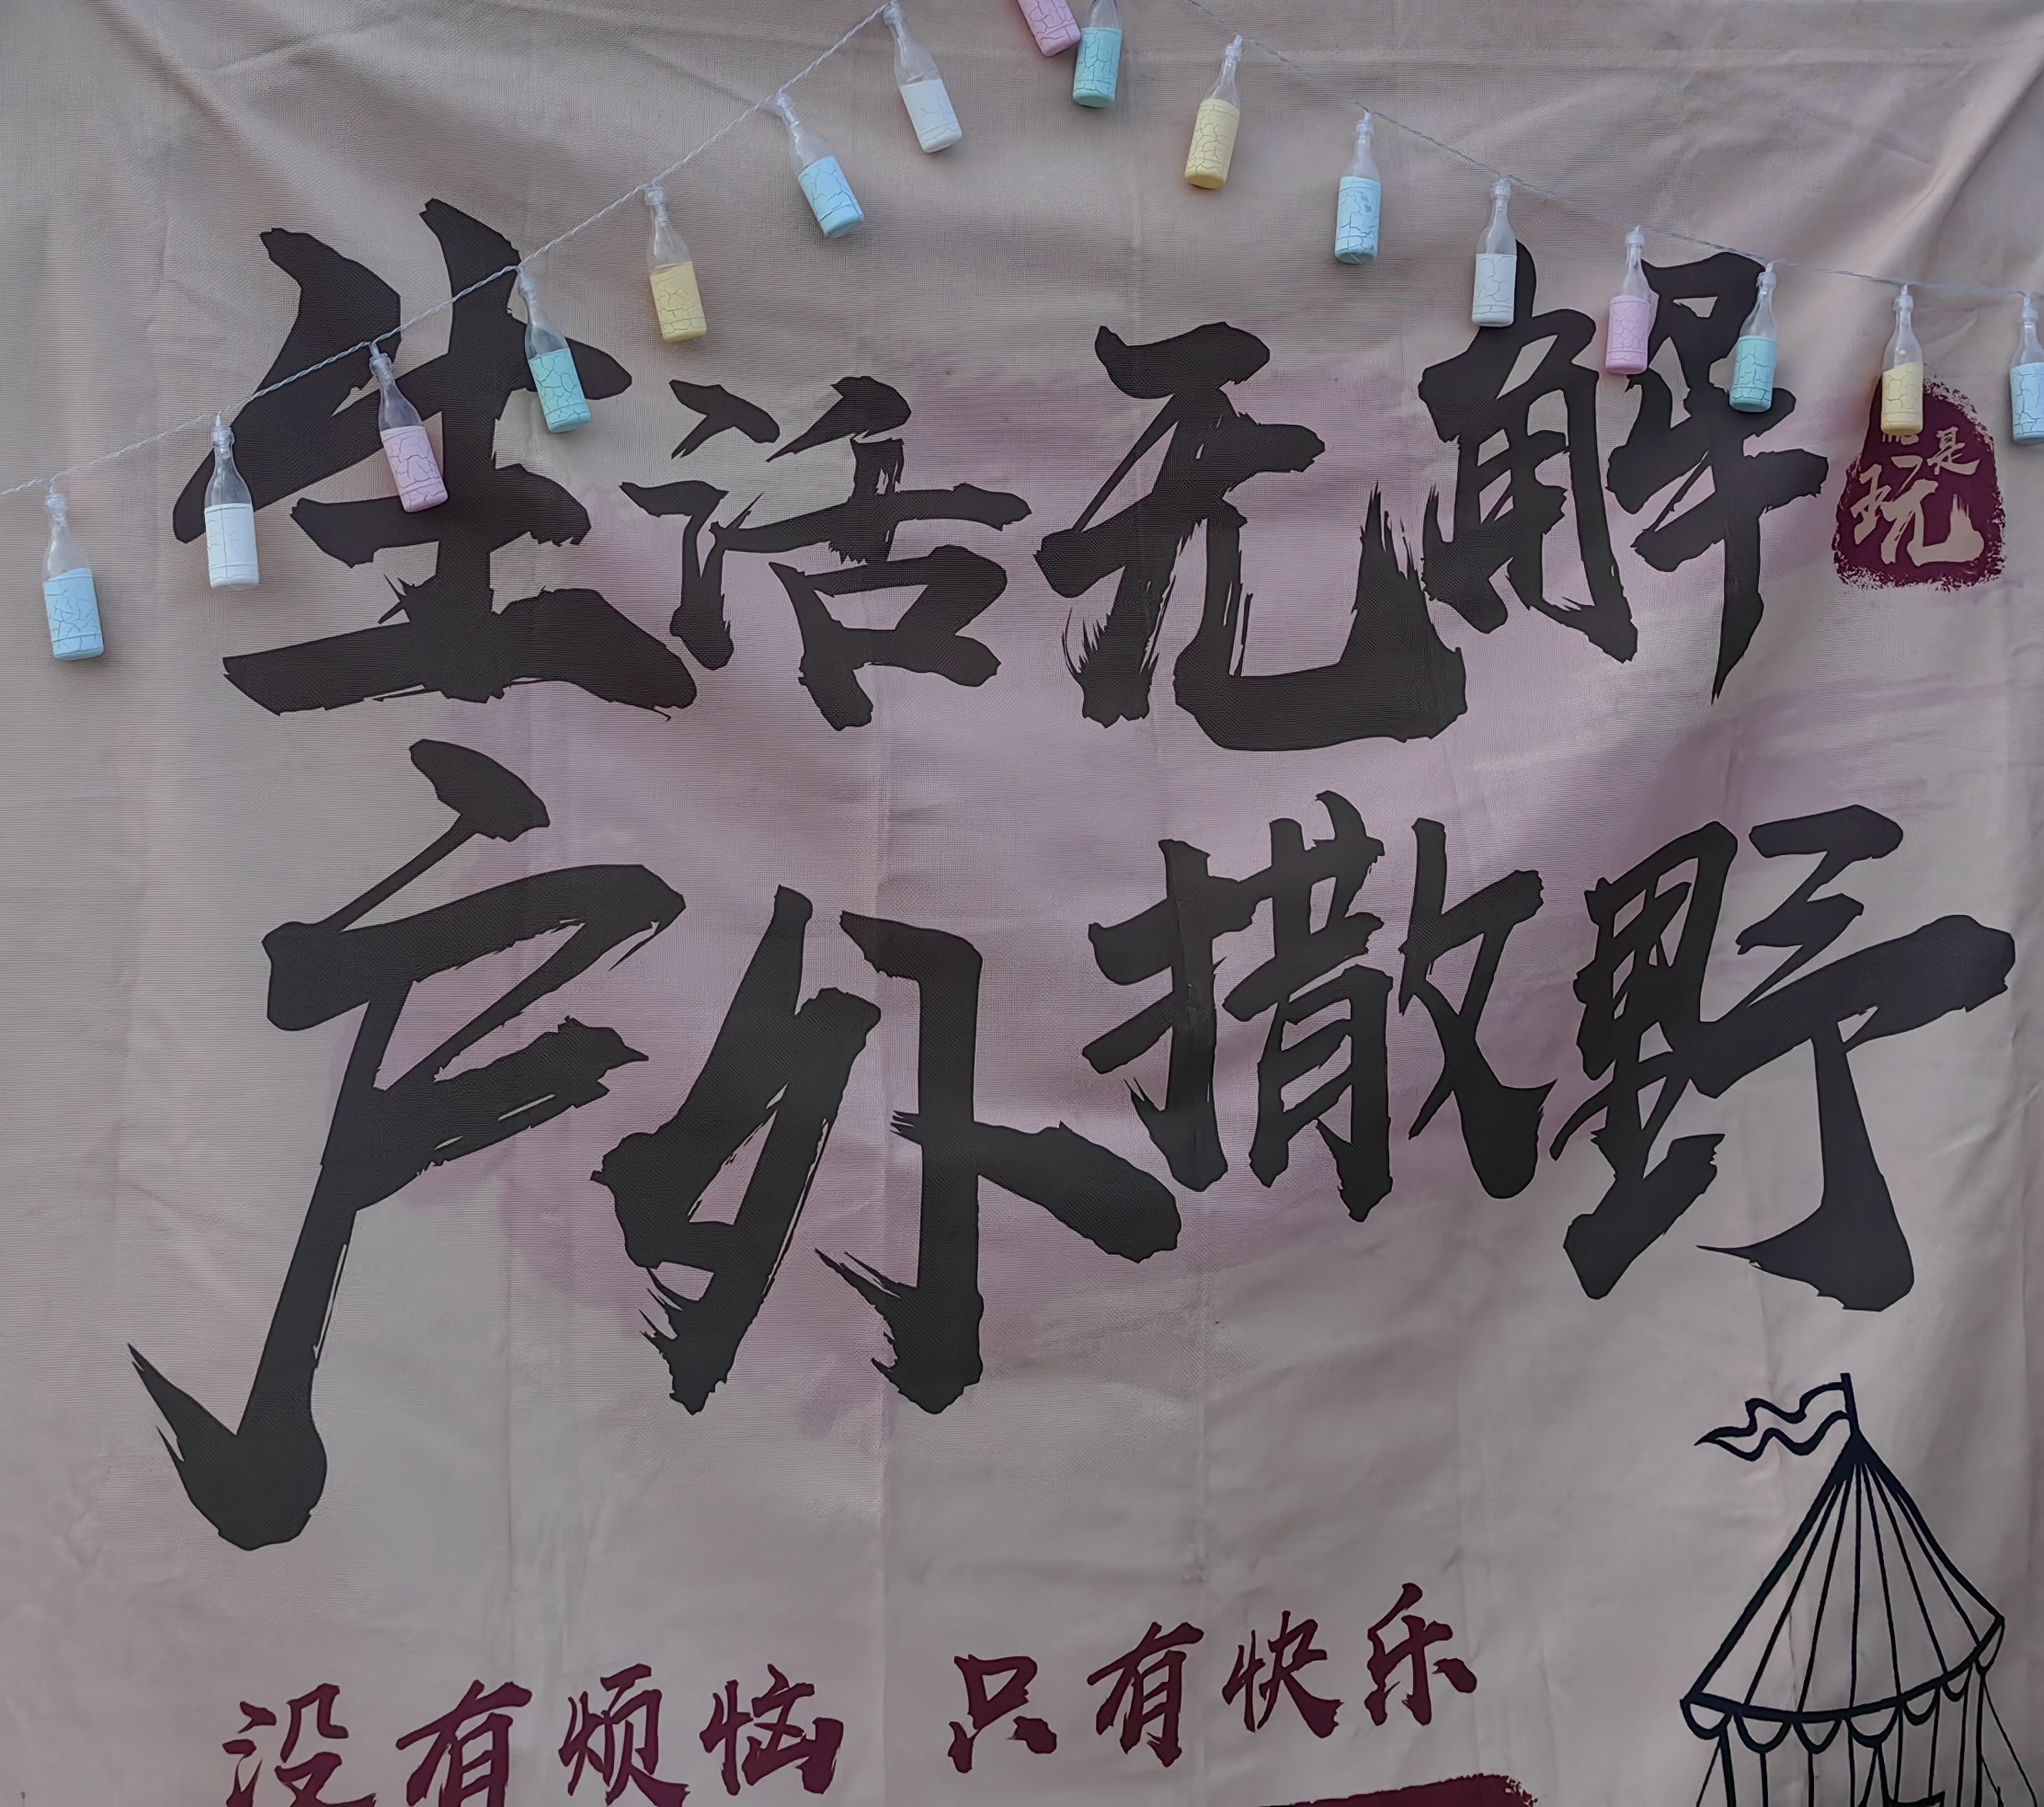 生活无解
是玩
户外撒野
没有烦恼 只有快乐